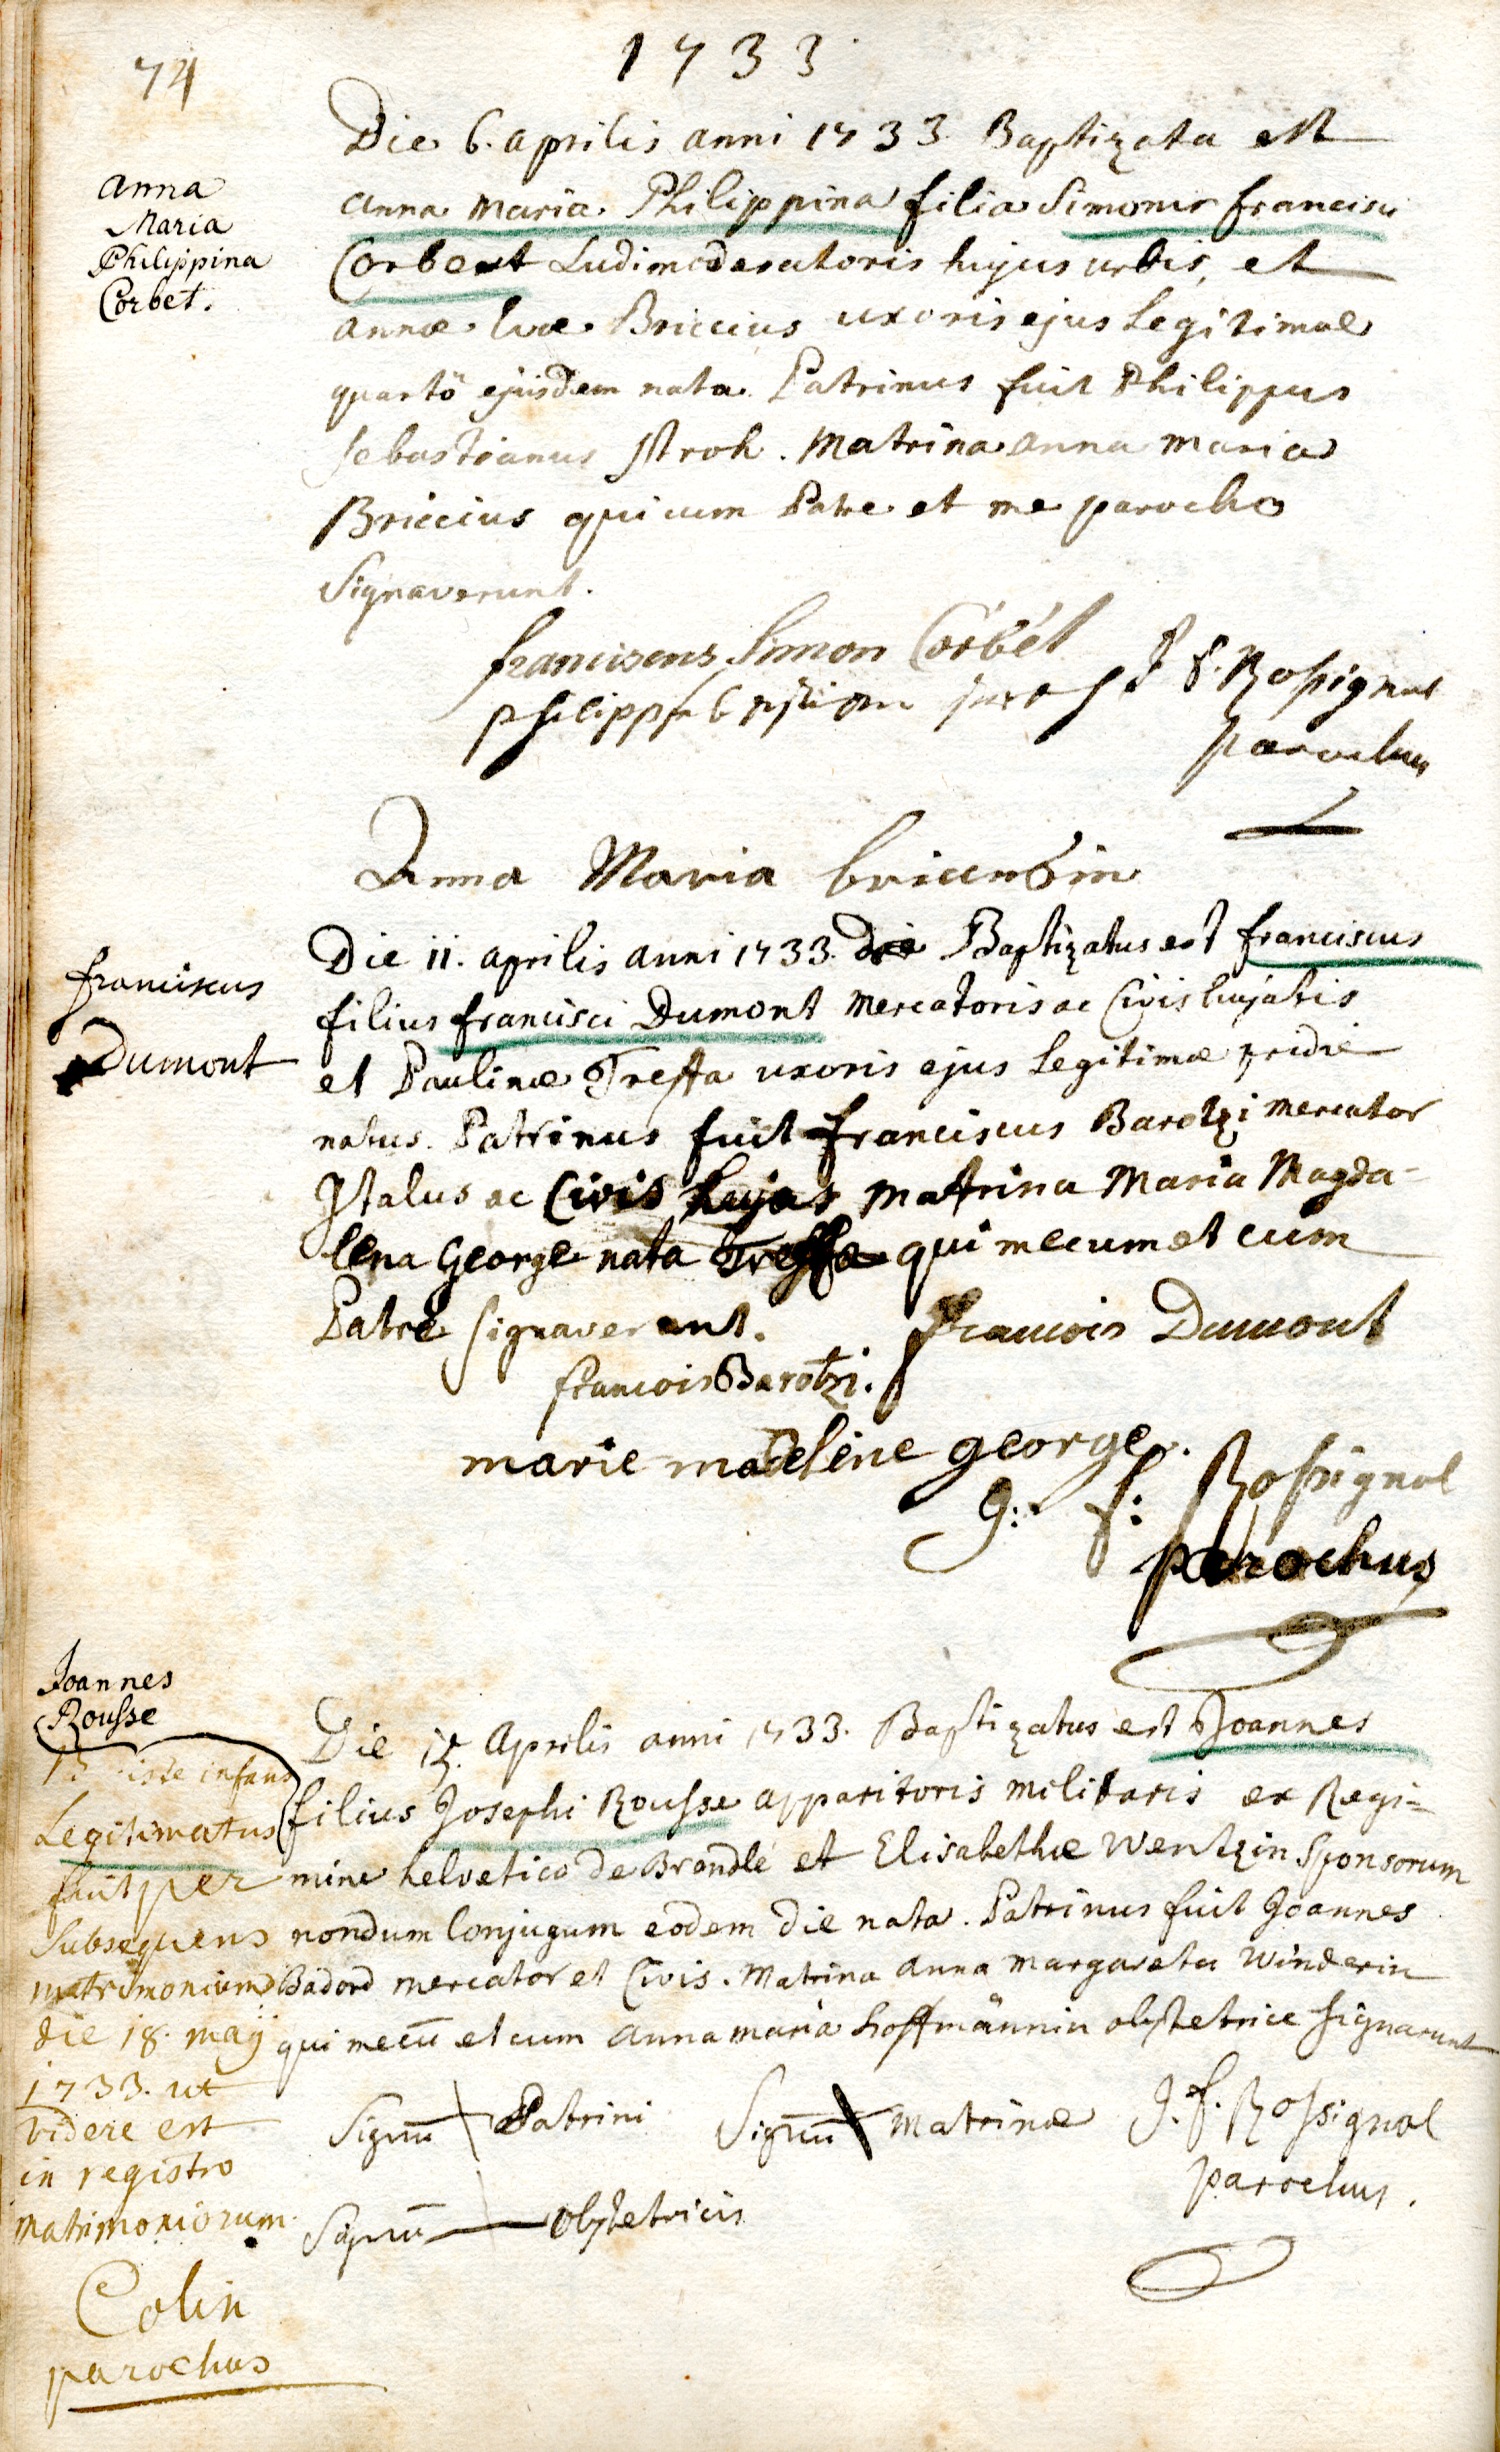 74
1733
Anna
Maria
Philippina
Corbet.
Die 6. aprilis anni 1733 Baptizata est
anna Maria Philippina filia Simonis francisci
Corbet Ludimoderatoris hujus urbis, et
annæ Evæ Briccius uxoris ejus Legitimæ
quartô ejusdem nata. Patrinus fuit Philippus
sebastianus stroh. Matrina anna maria
Briccius qui cum Patre et me parocho
Signaverunt.
franciscus Simon Corbet
J f. Rossignol
parochus
Anna Maria
franciscus
Dumont
Die 11. aprilis anni 1733. die Baptizatus est franciscus
filius francisci Dumont Mercatoris ac Civis hujatis
et Paulinæ Treffa uxoris ejus Legitimæ pridie
natus. Patrinus fuit franciscus Barotzi mercator
Italus ac Civis hujas Matrina Maria Magda-
lena George nata Treffa qui mecum et cum
Patre signaverunt.
francois Dumont
francois Barotzi.
marie madelene george.
J: f: Rossignol
parochus
Joannes
Rousse
iste infans
Legitimatus
fuit per
Subsequens
matrimonium
die 18. maij
1733. ut
videre est
in registro
matrimoniorum.
Colin
parochus
Die 15. Aprilis anni 1733. Baptizatus est Joannes
filius Josephi Rousse apparitoris militaris ex Regi=
mine helvetico de Brandlé et Elisabethæ Wentzin Sponsorum
nondum Conjugum eodem die nata. Patrinus fuit Joannes
Badord mercator et Civis. Matrina anna margareta Winderin
qui mecū et cum anna maria hoffmännin obstetrice signarunt
Signū Patrini
Signū Matrinæ
J. f. Rossignol
parochus.
Signū obstetricis